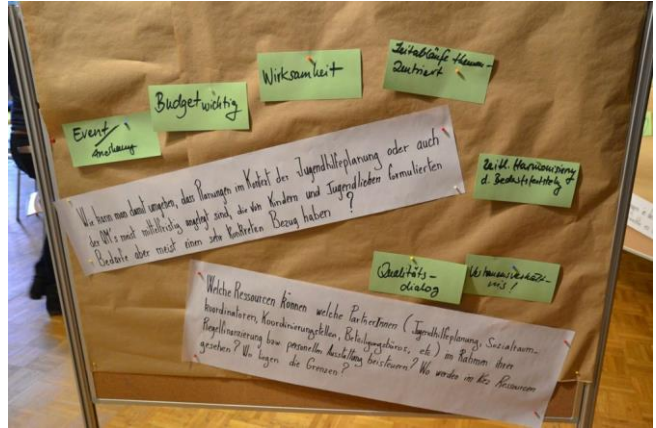 Event /
Budget wichtig
Wirksamkeit
Zeitabläufe themen-
zentriert
zeitl. Harmonisierung
d. Bedarfs
Wie kann man damit umgehen, dass Planungen im Kontext der Jugendhilfeplanung oder auch
der meist mittelfristig angelegt sind, die von Kindern und Jugendlichen formulierten
Bedarfe aber meist einen sehr konkreten Bezug haben ?
Qualitäts-
dialog
Vertrauensverhält-
nis !
Welche Ressourcen können welche PartnerInnen (Jugendhilfeplanung, Sozialraum-
koordinatoren, Koordinierungsstellen, Beteiligungsbüros, etc.) im Rahmen ihrer
Regelfinanzierung bzw. personellen Ausstattung beisteuern? Wo werden im Kiez Ressourcen
gesehen? Wo liegen die Grenzen?